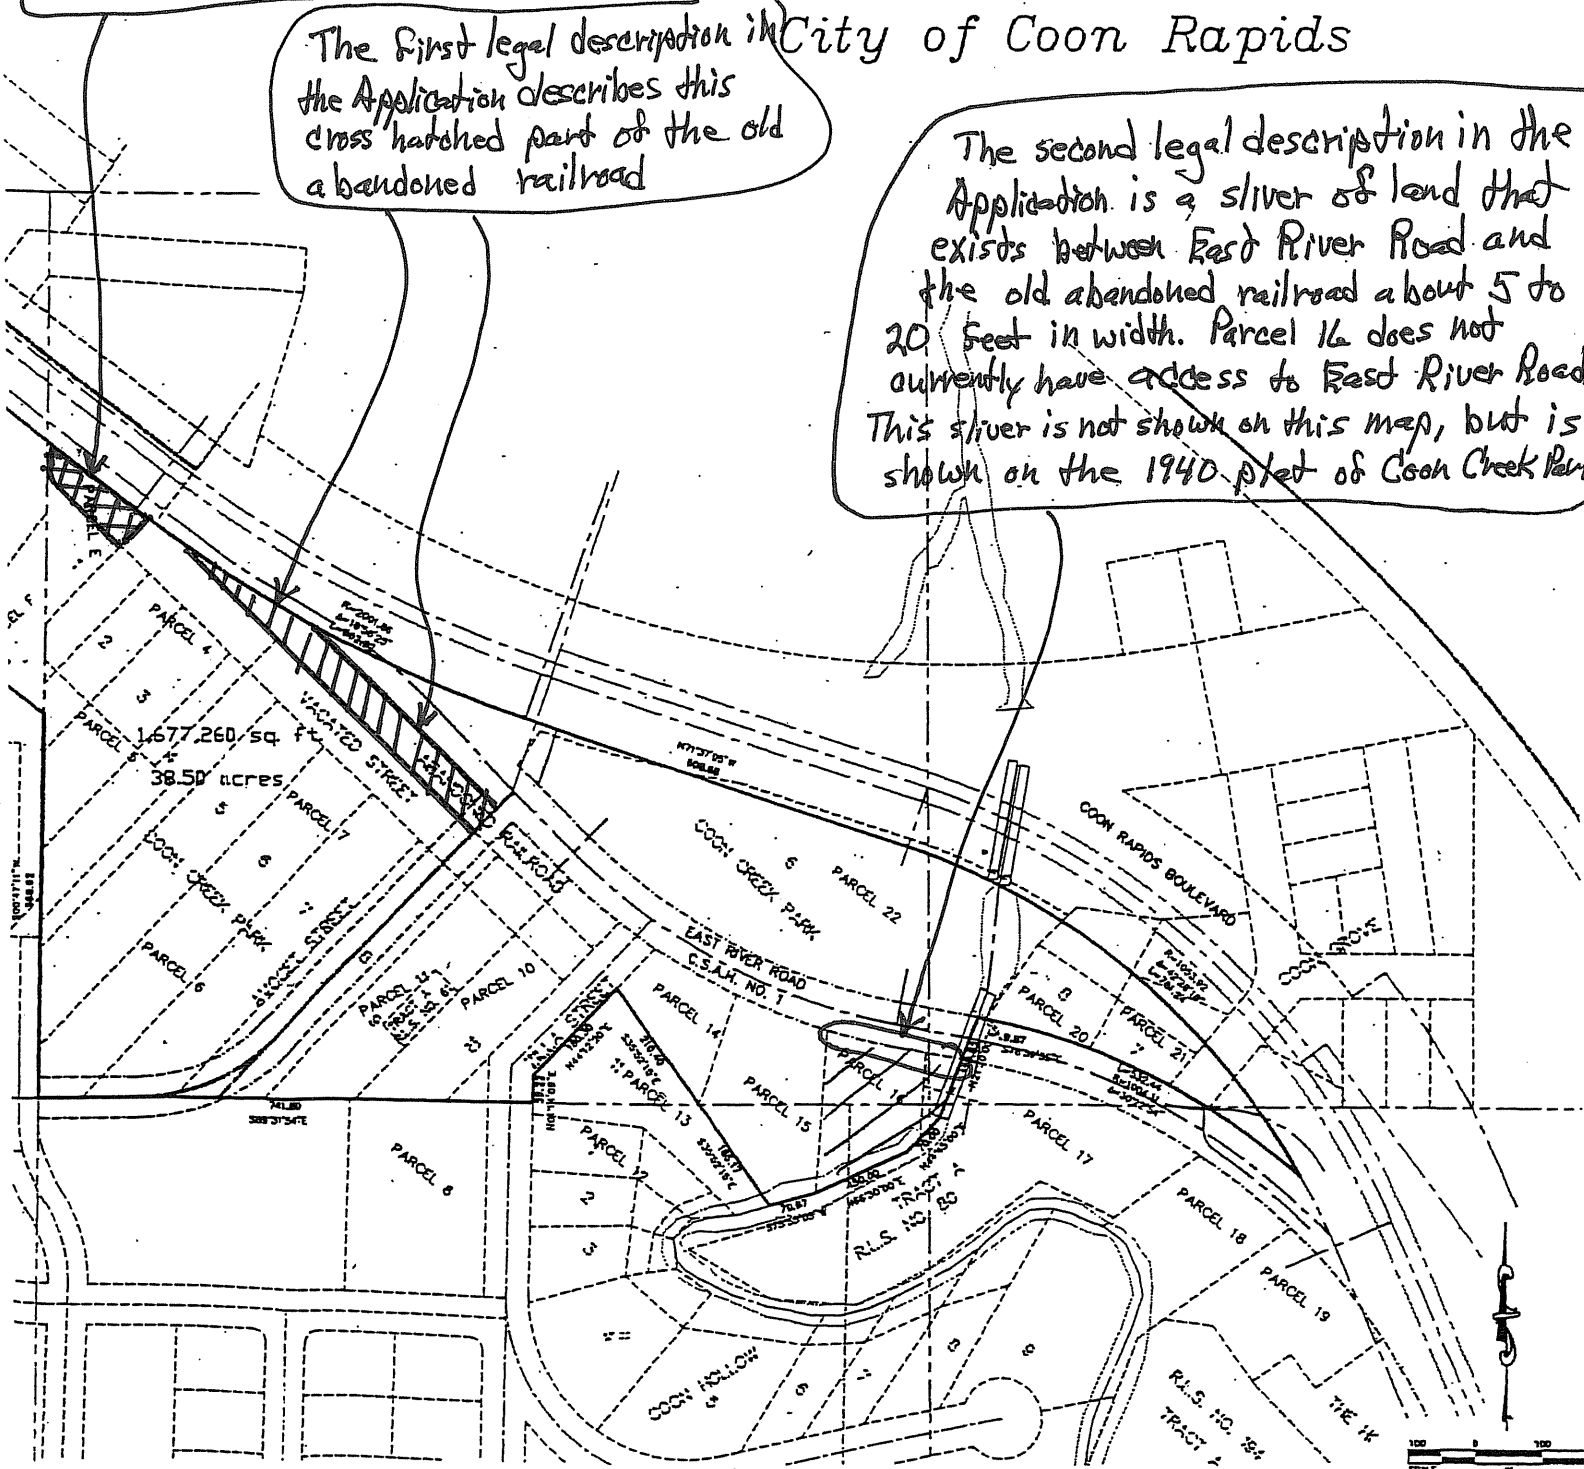 City of Coon Rapids
The first legal description in
the Application describes this
cross hatched part of the old
abandoned railroad
The second legal description in the
Application is a sliver of land that
exists between East River Road and
the old abandoned railroad about 5 to
20 feet in width. Parcel 16 does not
currently have access to East River Road
This sliver is not shown on this map, but is
shown on the 1940 plat of Coon Creek Par
PARCEL E
PARCEL 4
2
3
PARCEL 5
4
1,677,260 sq ft
38.50 acres
5
VACATED
STREET
ABANDONED RAILROAD
PARCEL 7
6
COON CREEK PARK
7
PARCEL 6
STREET
8
PARCEL 11
PARCEL 10
N71°37'05"W
COON CREEK PARK
6
PARCEL 22
COON RAPIDS BOULEVARD
EAST RIVER ROAD
C.S.A.H. NO. 1
PARCEL 14
8
PARCEL 20
PARCEL 21
7
PARCEL 16
PARCEL 15
PARCEL 13
PARCEL 12
2
3
PARCEL 17
741.80
S89°31'54"E
PARCEL 8
TRACT A
R.L.S. NO. 80
PARCEL 18
PARCEL 19
COON HOLLOW
5
6
7
8
9
R.L.S. NO. 194
TRACT
THE 1K
100 0 100